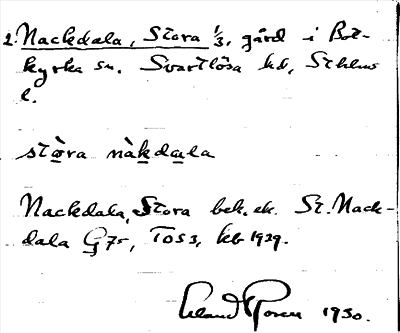 2. Nackdala, Stora 1/3, gård i Bot-
kyrka sn. Svartlösa hd, Sthlms
l.
stòra nàkdala
Nackdala, Stora bek. ek. St. Nack-
dala G 75, T053, keb 1939.
Erland 1930.